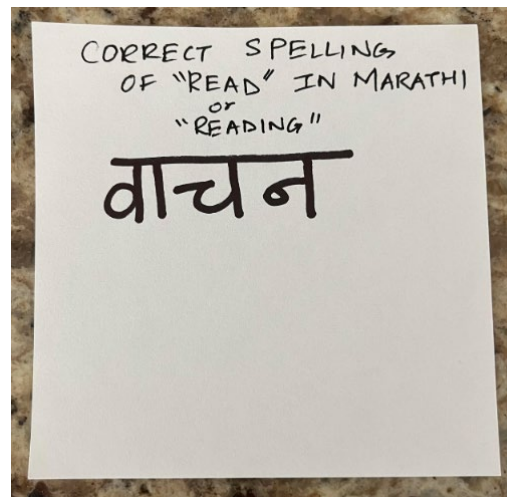 CORRECT SPELLING
OF "READ" IN MARATHI
or
"READING"
वाचन